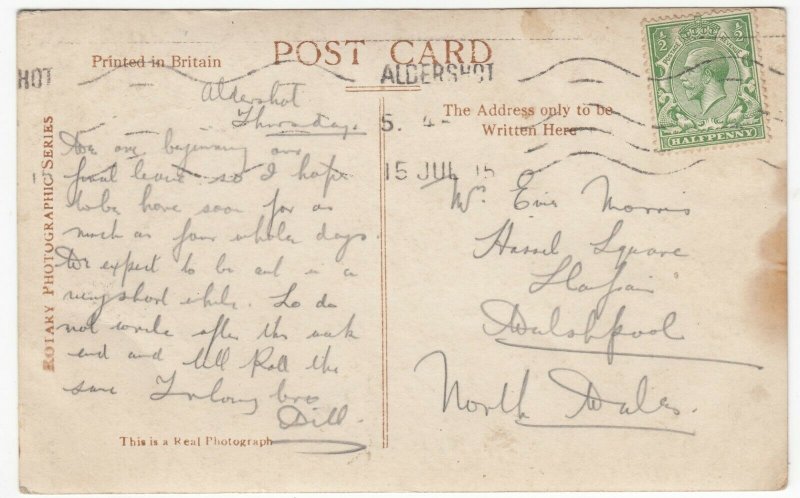 POST CARD
Printed in Britain
HOT
ALDERSHOT
5. 4-
15 JUL 15
HALFPENNY
The Address only to be
Written Here
ROTARY PHOTOGRAPHIC SERIES
Aldershot
Thursday.
We are beginning our
final leave so I hope
to be home soon for as
much as four whole days.
We expect to be out in a
very short while. So do
not write after this week
end and tell Roll the
same Yr loving bro
Bill.
Evie Morris
Hassel Square
Walshpool
North Wales.
This is a Real Photograph